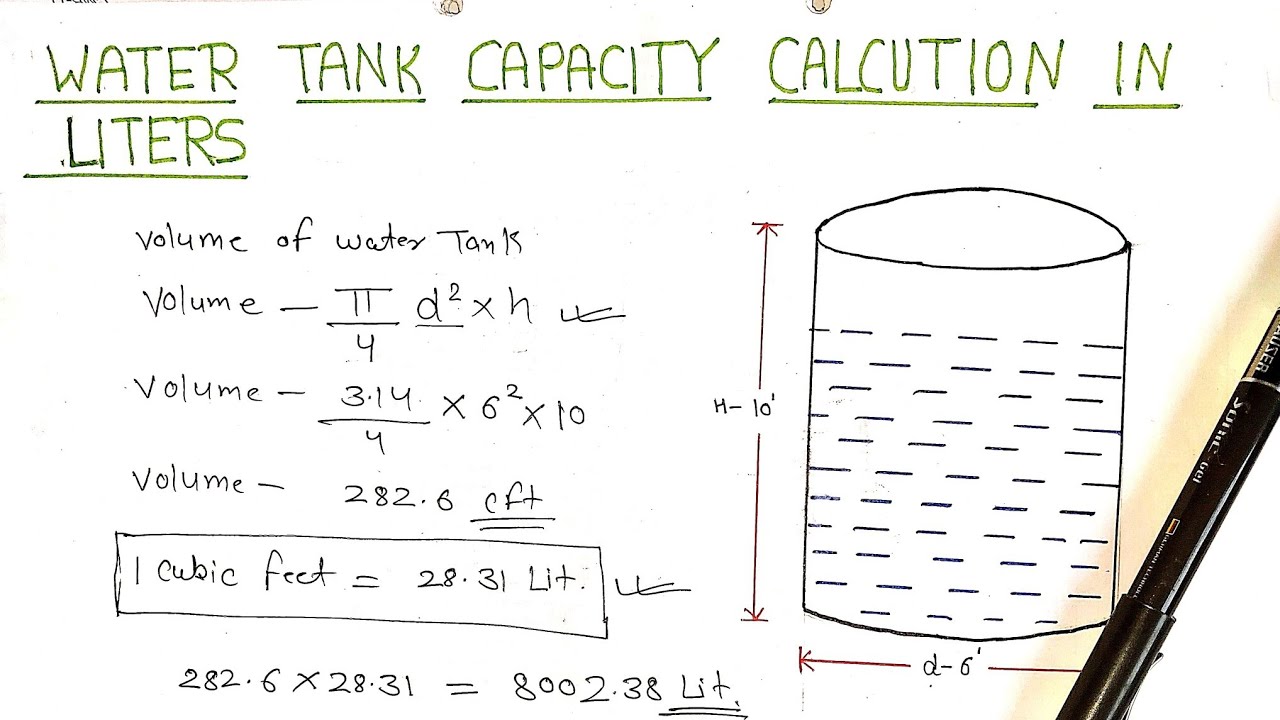 WATER TANK CAPACITY CALCUTION IN
LITERS
Volume of water Tank
Volume – π/4 d² × h
Volume – 3.14/4 × 6² × 10
Volume – 282.6 cft
1 cubic feet = 28.31 Lit.
282.6 × 28.31 = 8002.38 Lit.
H – 10'
d – 6'
Gel